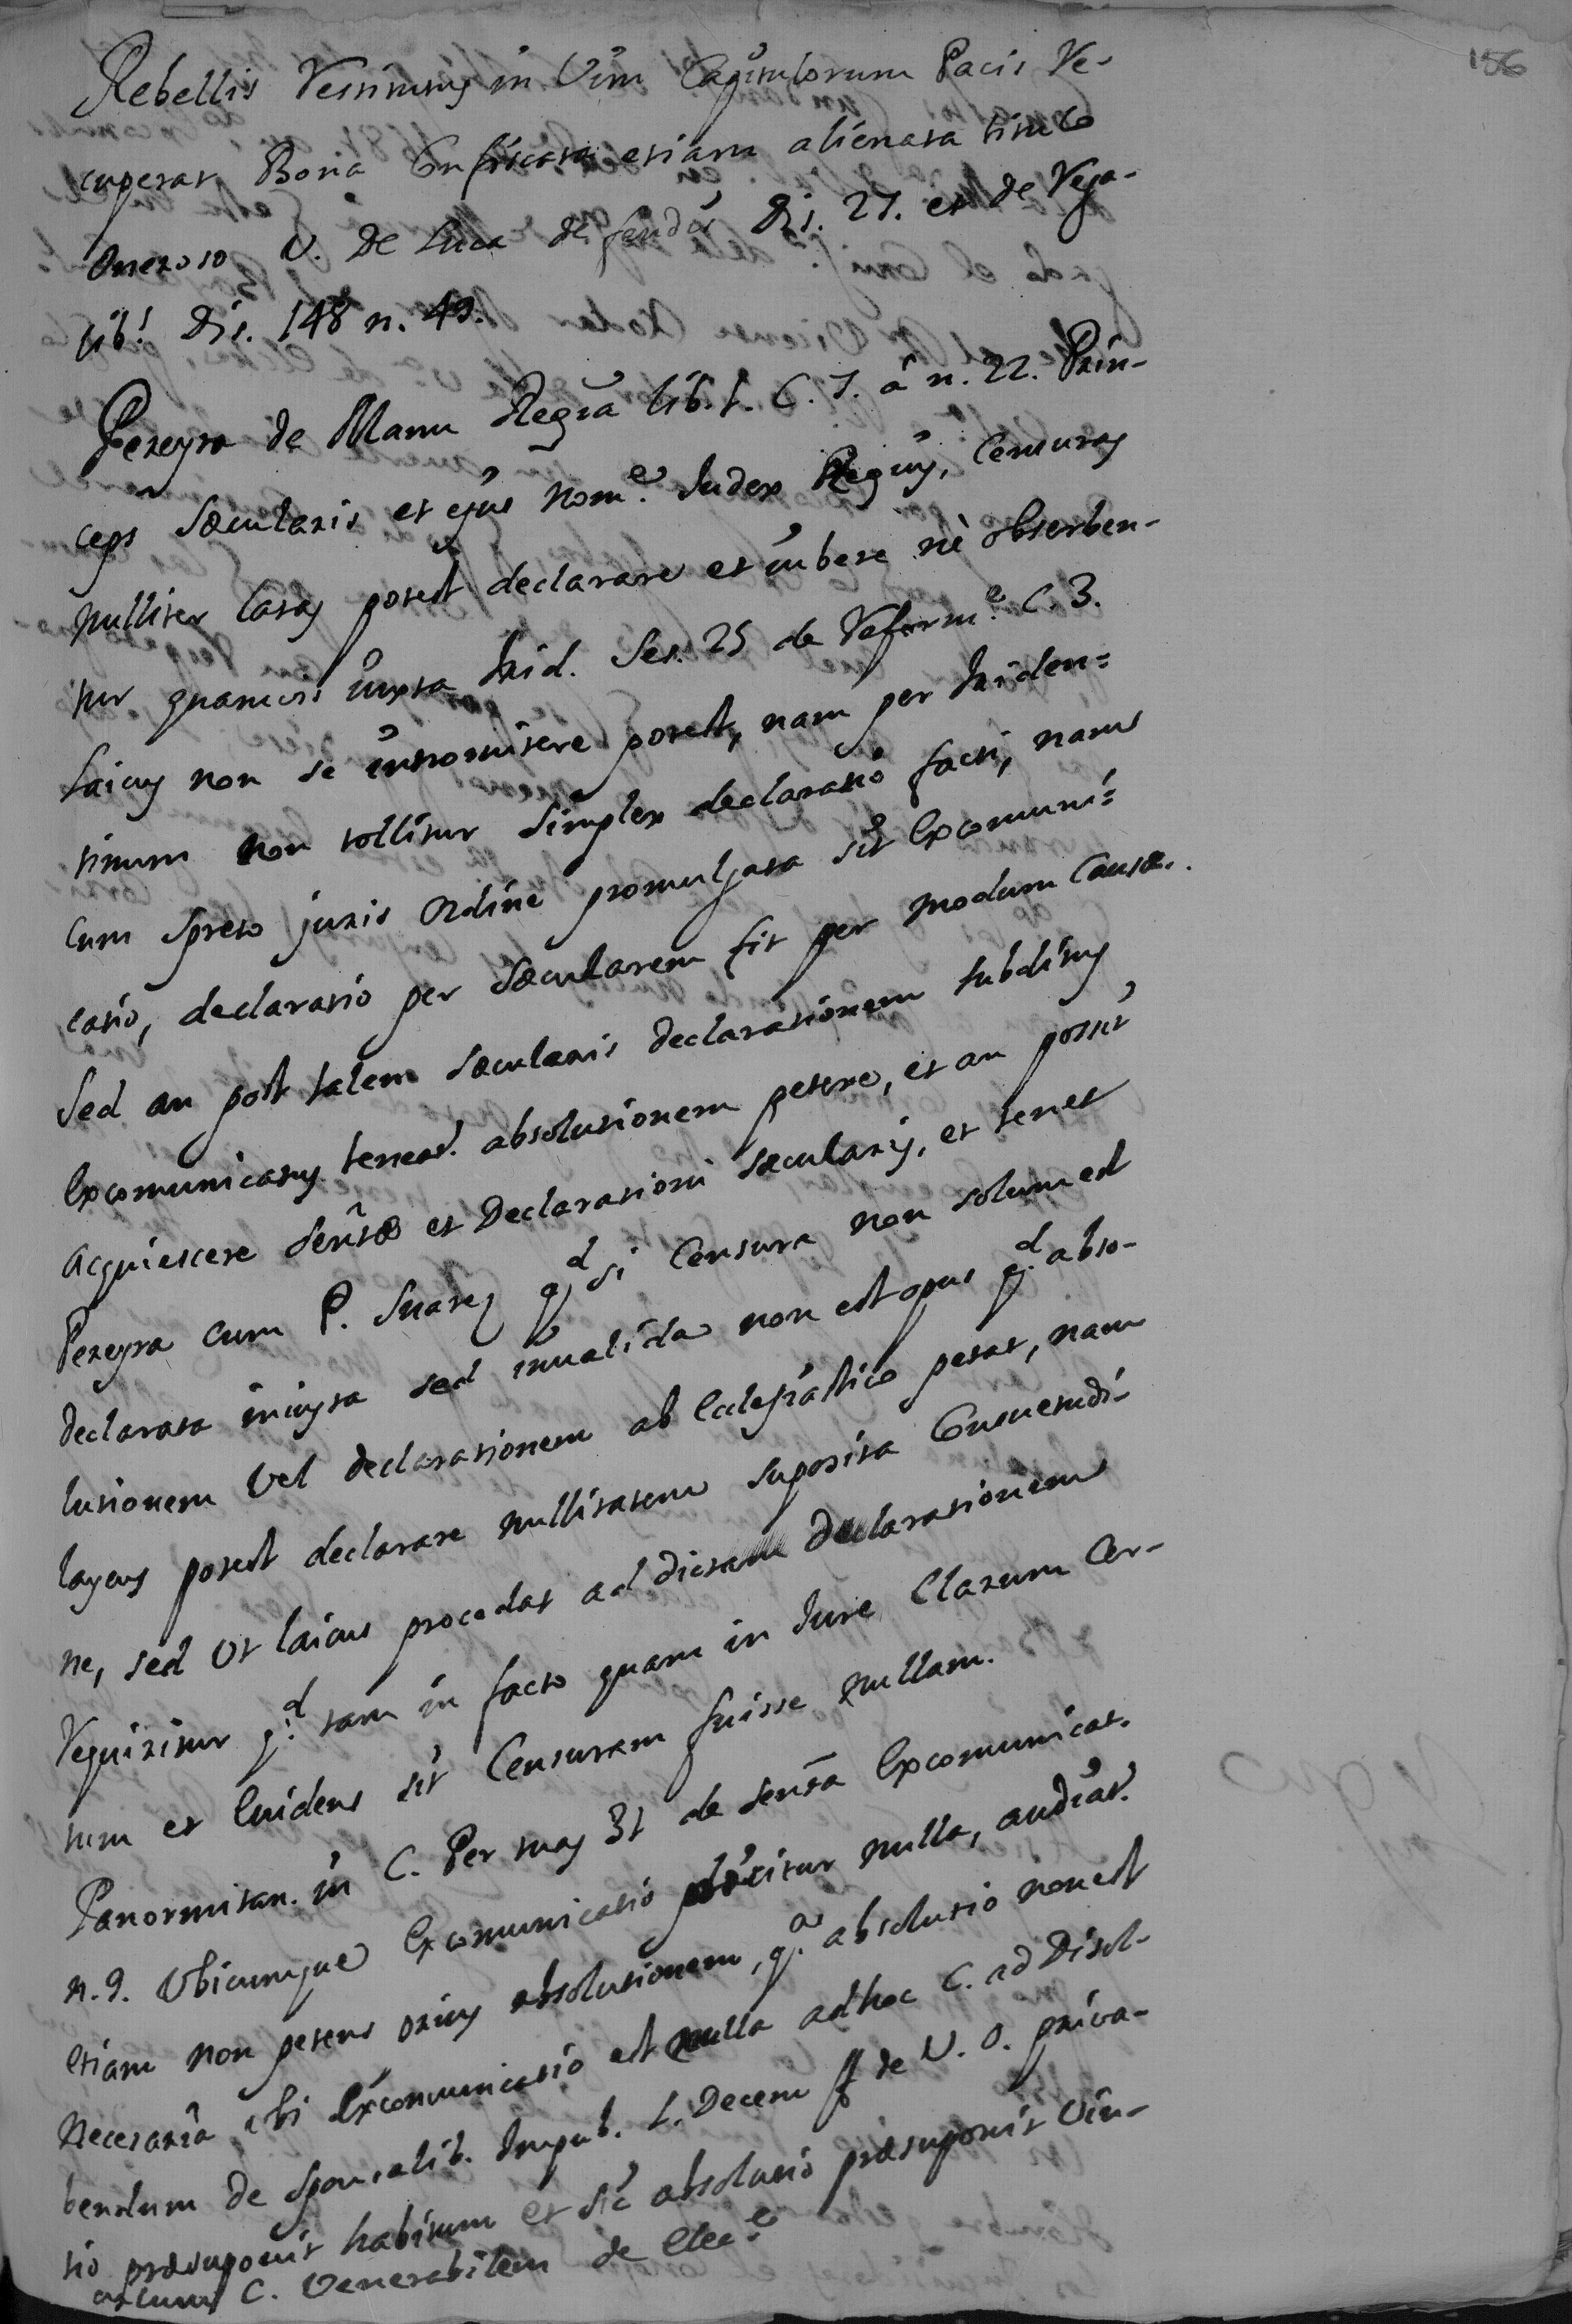 156
Rebellis Vesinus in Vim Capitulorum Pacis Re-
cuperat Bona Confiscata etiam alienata titulo
oneroso V. De Luca de feudis Dis. 27. et de Rega-
lib.s Dis. 148 n. 49.
Pereyra de Manu Regia lib. 1. C. 7. â n. 22. Prin-
ceps Sæcularis et ejus nom.e Judex Regius, Censuras
nulliter latas potest declarare et iubere nè obserben-
tur quamvis iuxta Trid. Ses. 25 de Reform.e C. 3.
Laicus non se intromitere potest, nam per Triden=
tinum non tollitur Simplex declaratio facti, nam
Cum Spreto juris Ordine promulgata sit Excomuni=
catio, declaratio per Sæcularem fit per modum Causæ.
Sed an post talem Sæcularis declarationem subditus
Excomunicatus teneat.r absolutionem petere, et an possit
acquiescere Sentæ et Declarationi Sæcularis, et tenet
Pereyra cum P. Suarez q.d si Censura non solum est
Declarata iniusta sed inualida non est opus q.d abso-
lutionem Vel declarationem ab Eclesiastico petat, nam
laycus potest declarare nullitatem suposita Consuetudi-
ne, sed Vt laicus procedat ad dictam declarationem
Requiritur q.d tam in facto quam in Jure Clarum Cer-
tum et Euidens sit Censuram fuisse nullam.
Panormitan. in C. Per tuas 31 de Senta Excomunicat.
n. 9. Vbicumque Excomunicatio dicitur nulla, audiat.r
etiam non petens prius absolutionem, q.a absolutio non est
Necesaria ubi Excomunicatio est nulla adhoc C. ad Disol-
bendum de Sponsalib. Impub. L. Decem ff de V. O. priva-
tio præsuponit habitum et sic absolutio præsuponit Vin-
culum C. Venerabilem de Elec.e